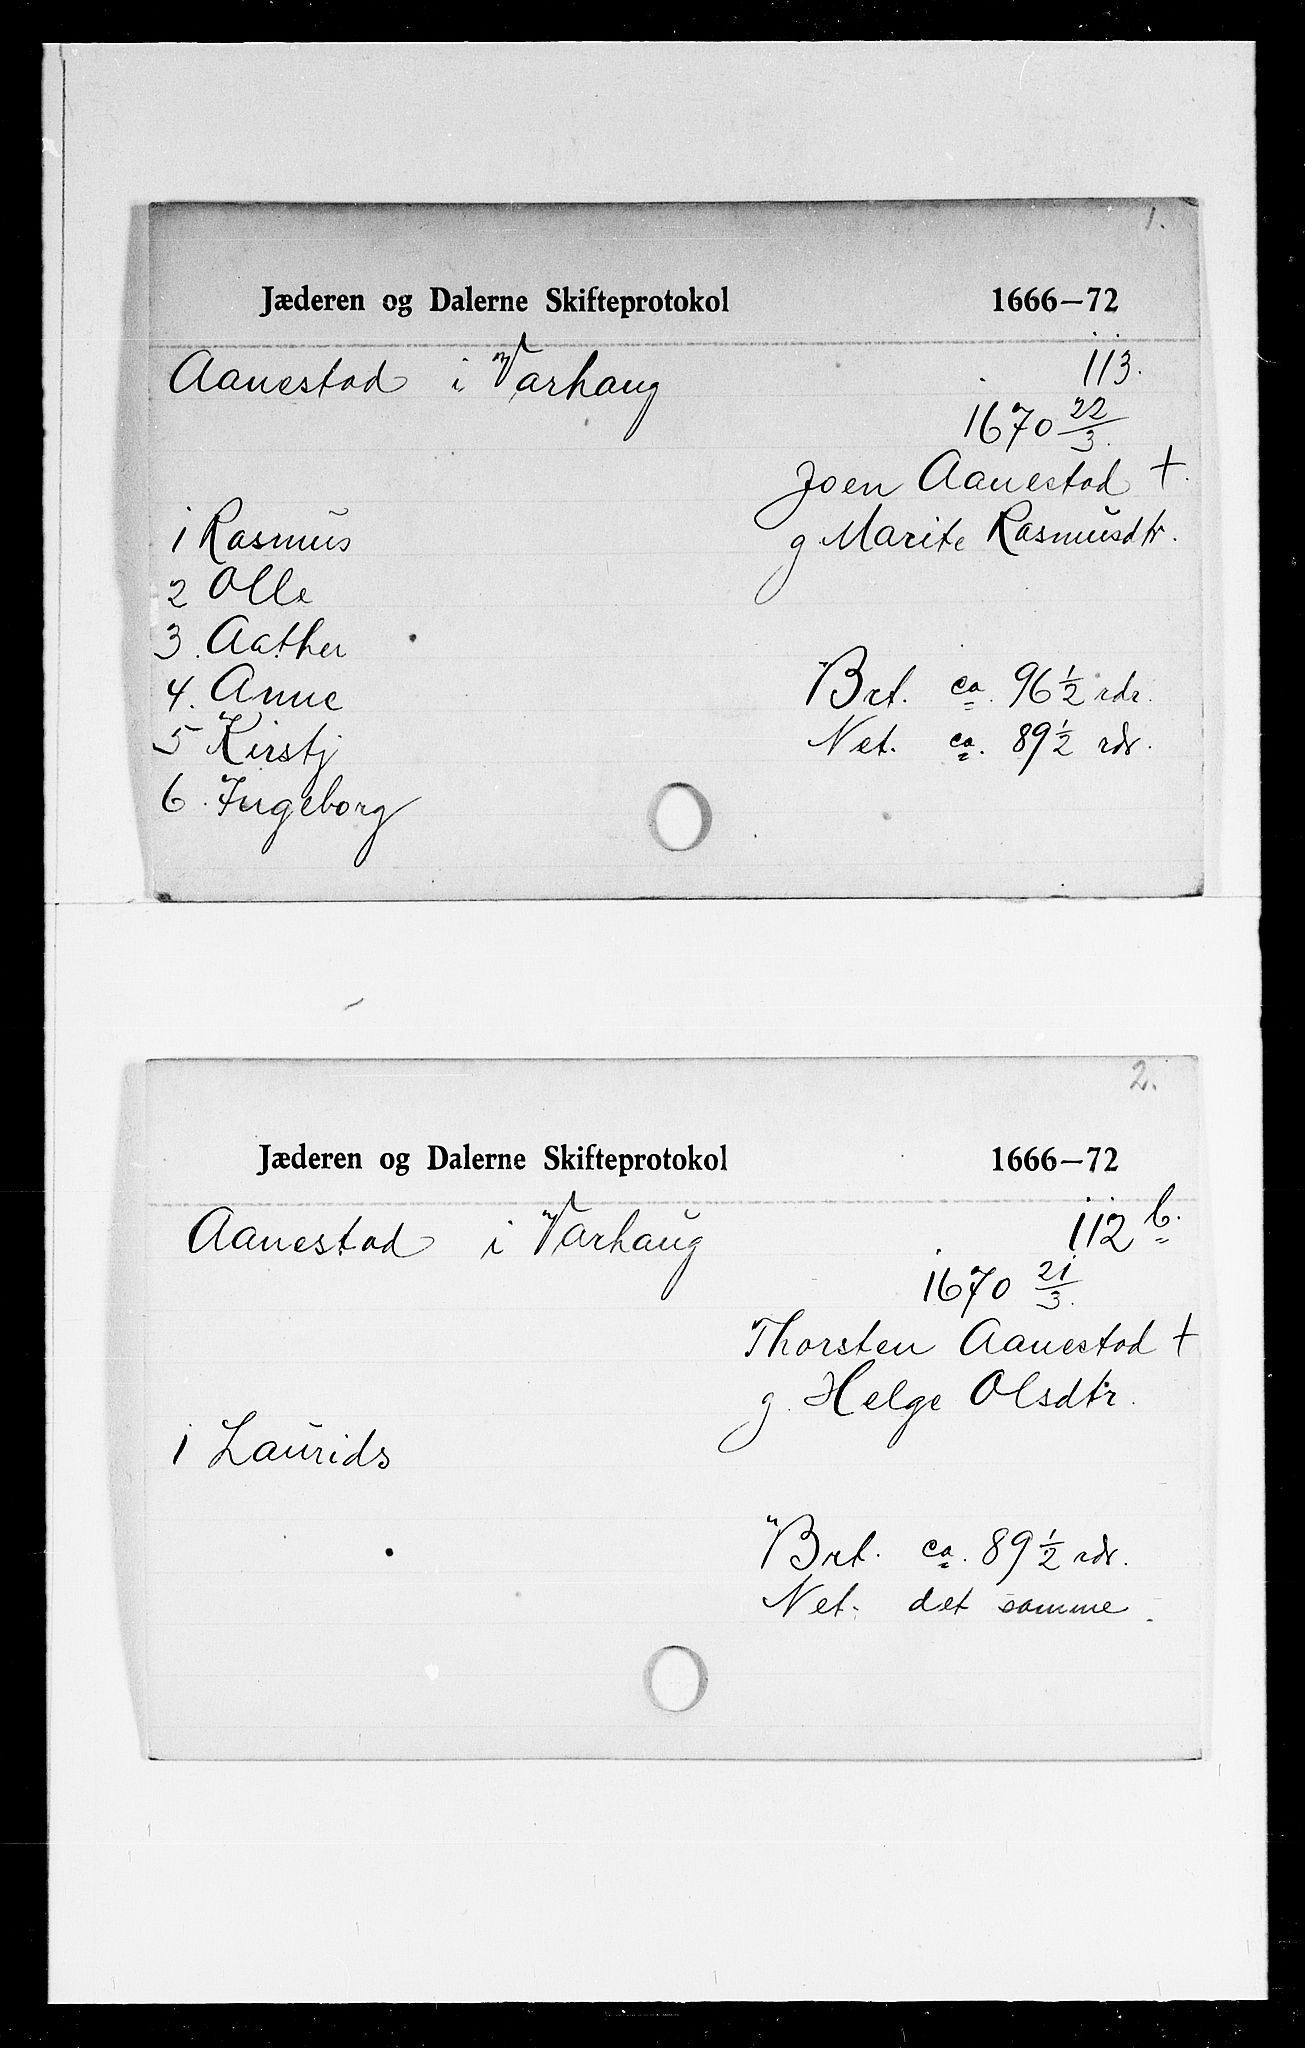 1.
Jæderen og Dalerne Skifteprotokol 1666–72
Aanestad i Varhaug 113.
1670 22/3.
Joen Aanestad +.
1 Rasmus g Marite Rasmusdtr.
2 Olle
3. Aather
4. Anne Brt. ca. 96 1/2 rdr.
5 Kirstj Net. ca. 89 1/2 rdr.
6. Ingeborg
2.
Jæderen og Dalerne Skifteprotokol 1666–72
Aanestad i Varhaug 112 b.
1670 21/3.
Thorsten Aanestad +
g. Helge Olsdtr.
1 Laurids
Brt. ca. 89 1/2 rdr.
Net. det samme.